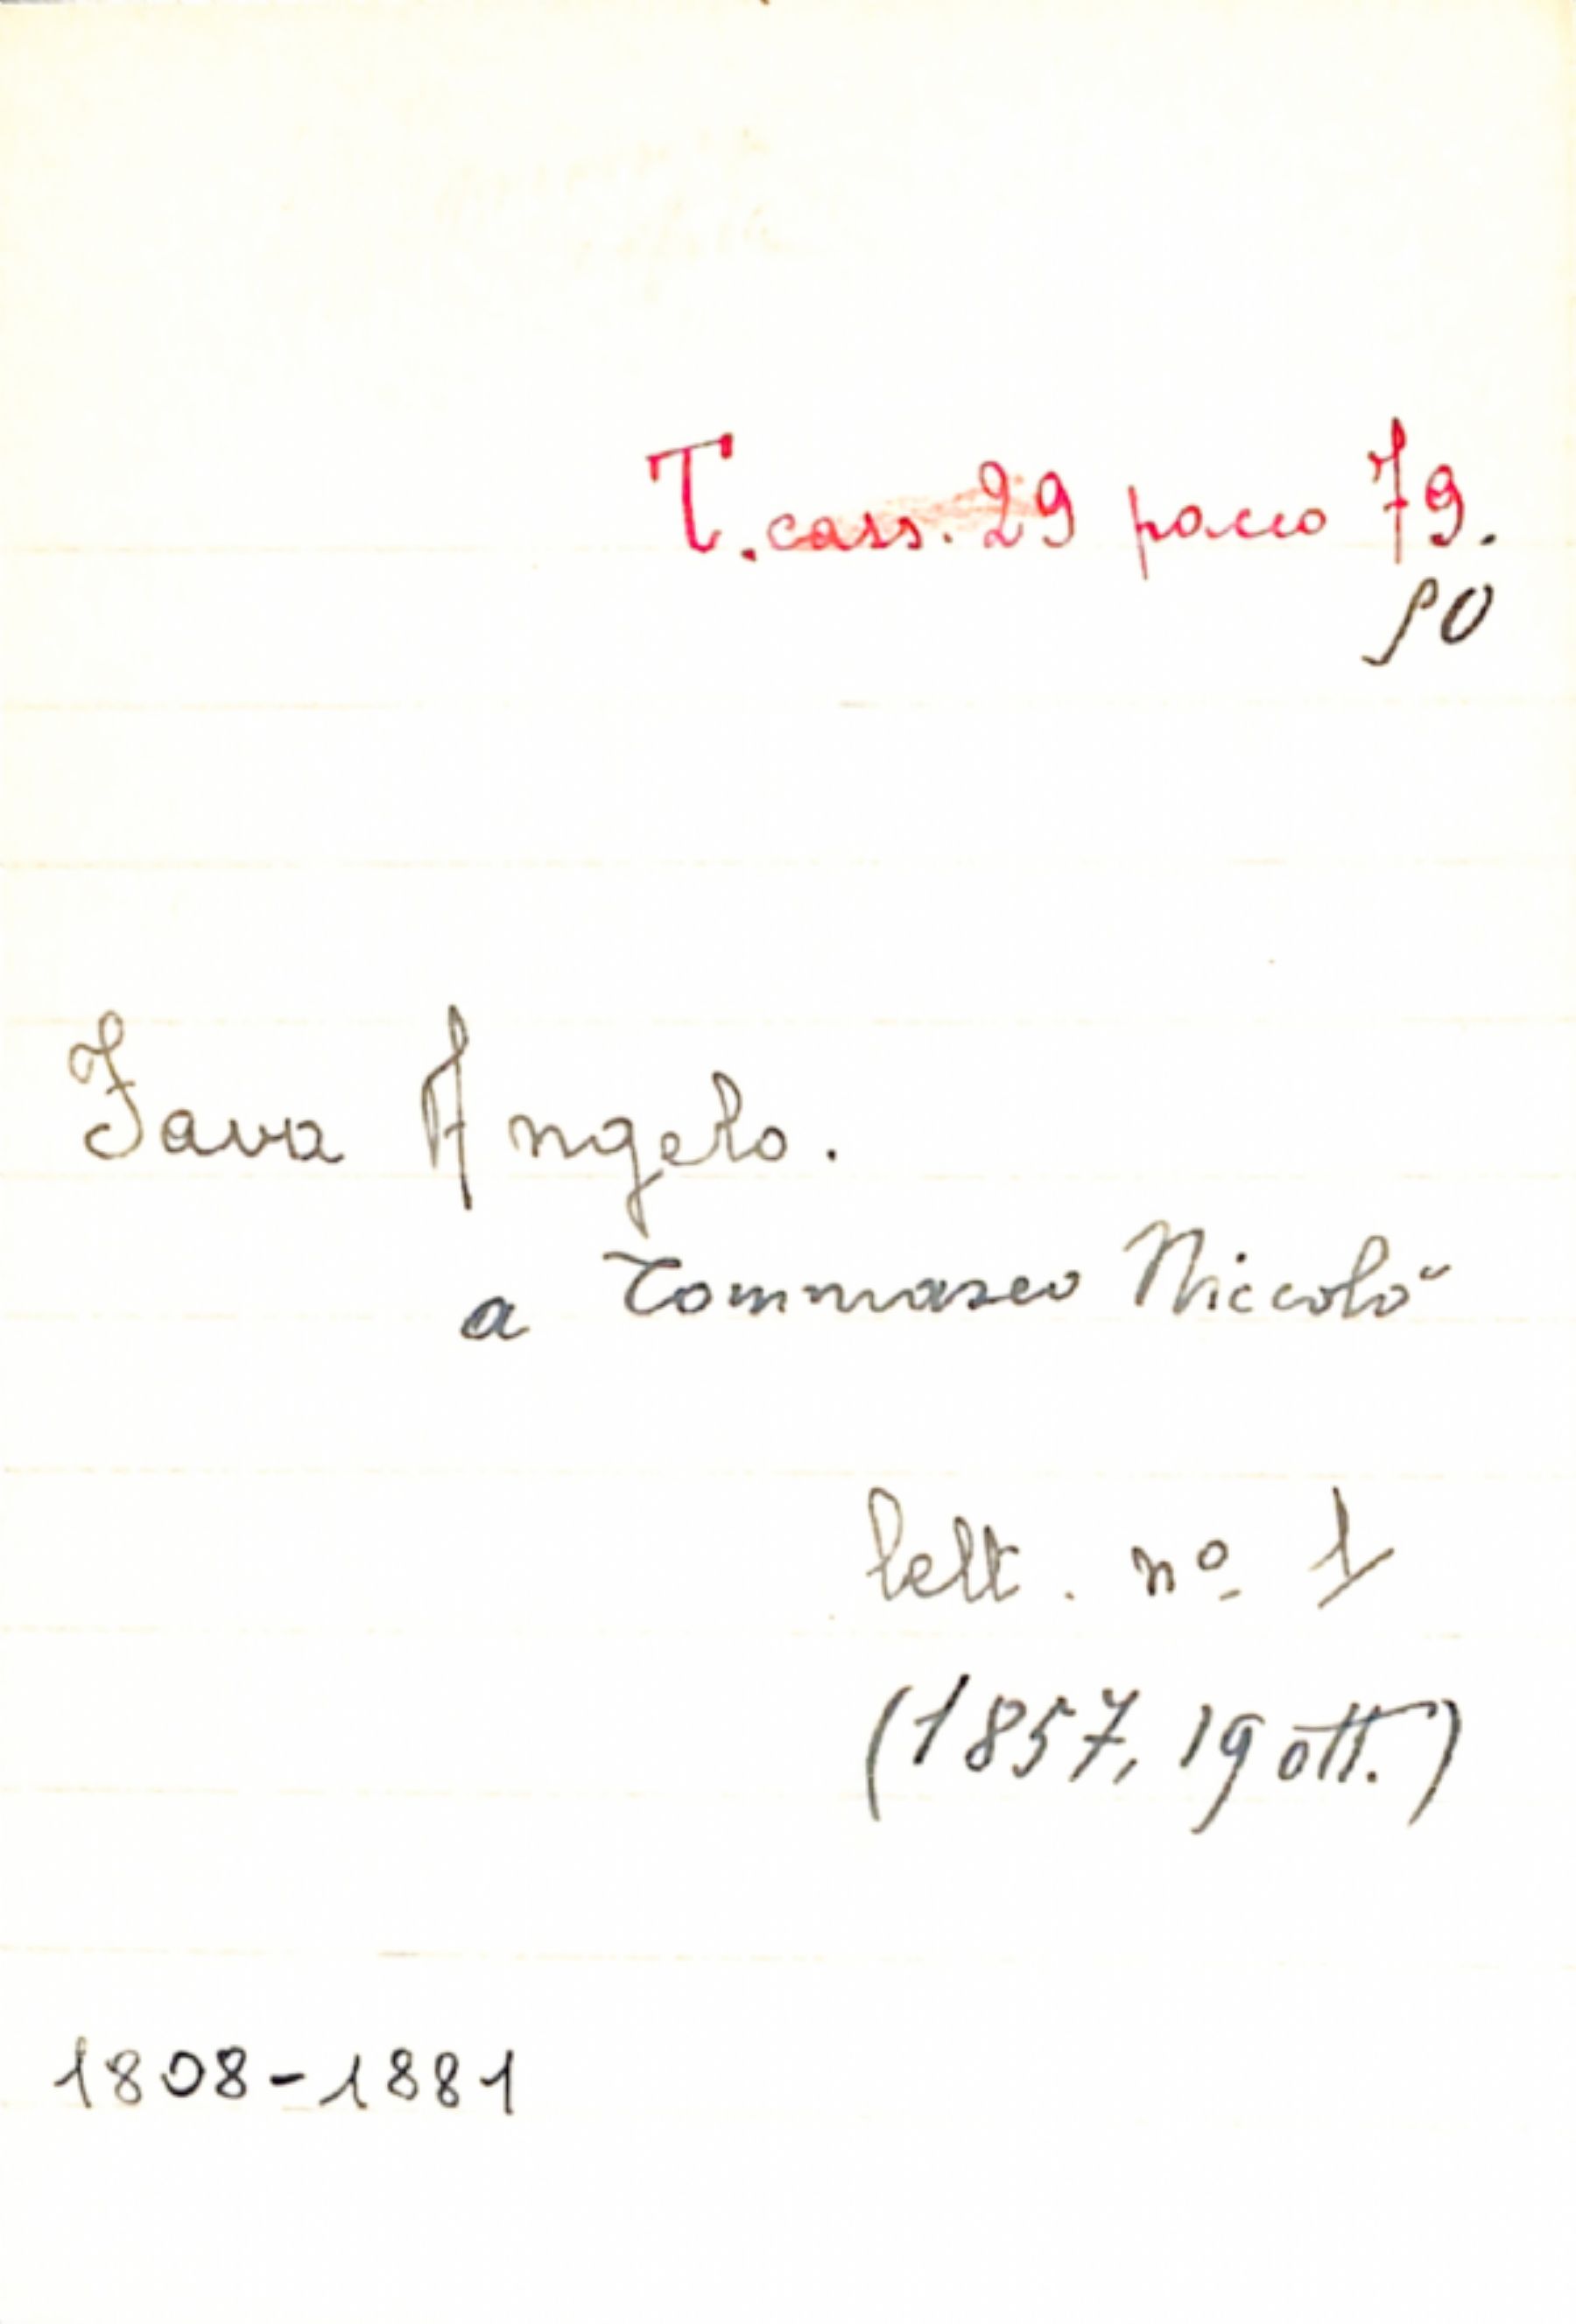 T. cass. 29 pacco 79.
50
Fava Angelo.
a Tommaseo Niccolò
lett. nº 1
(1857, 19 ott.)
1808-1881